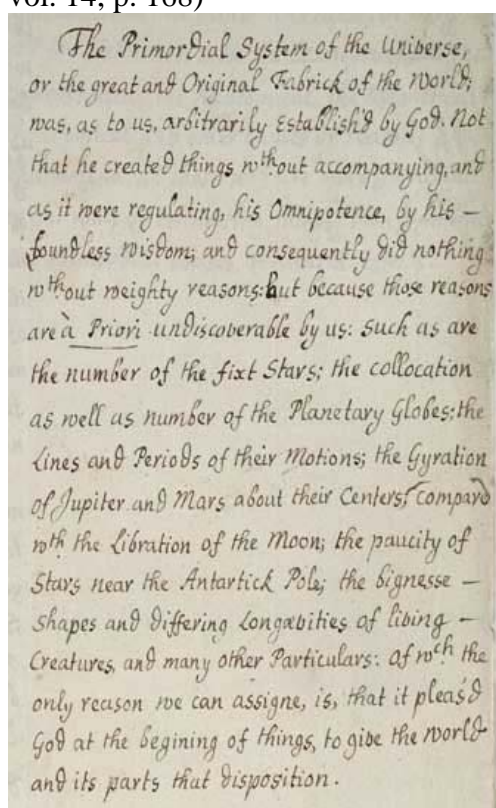 vol. 14, p. 168)
The Primordial System of the Universe,
or the great and Original Fabrick of the World;
was, as to us, arbitrarily Establish'd by God. Not
that he created things wth out accompanying, and
as it were regulating, his Omnipotence, by his –
boundless wisdom; and consequently did nothing
wth out weighty reasons: but because those reasons
are à Priori undiscoverable by us: such as are
the number of the fixt Stars; the collocation
as well as number of the Planetary Globes; the
Lines and Periods of their Motions; the Gyration
of Jupiter and Mars about their Centers, compar'd
wth the Libration of the Moon; the paucity of
Stars near the Antartick Pole; the bignesse –
Shapes and differing Longævities of living –
Creatures, and many other Particulars: of wch the
only reason we can assigne, is, that it pleas'd
God at the begining of things, to give the world
and its parts that disposition.